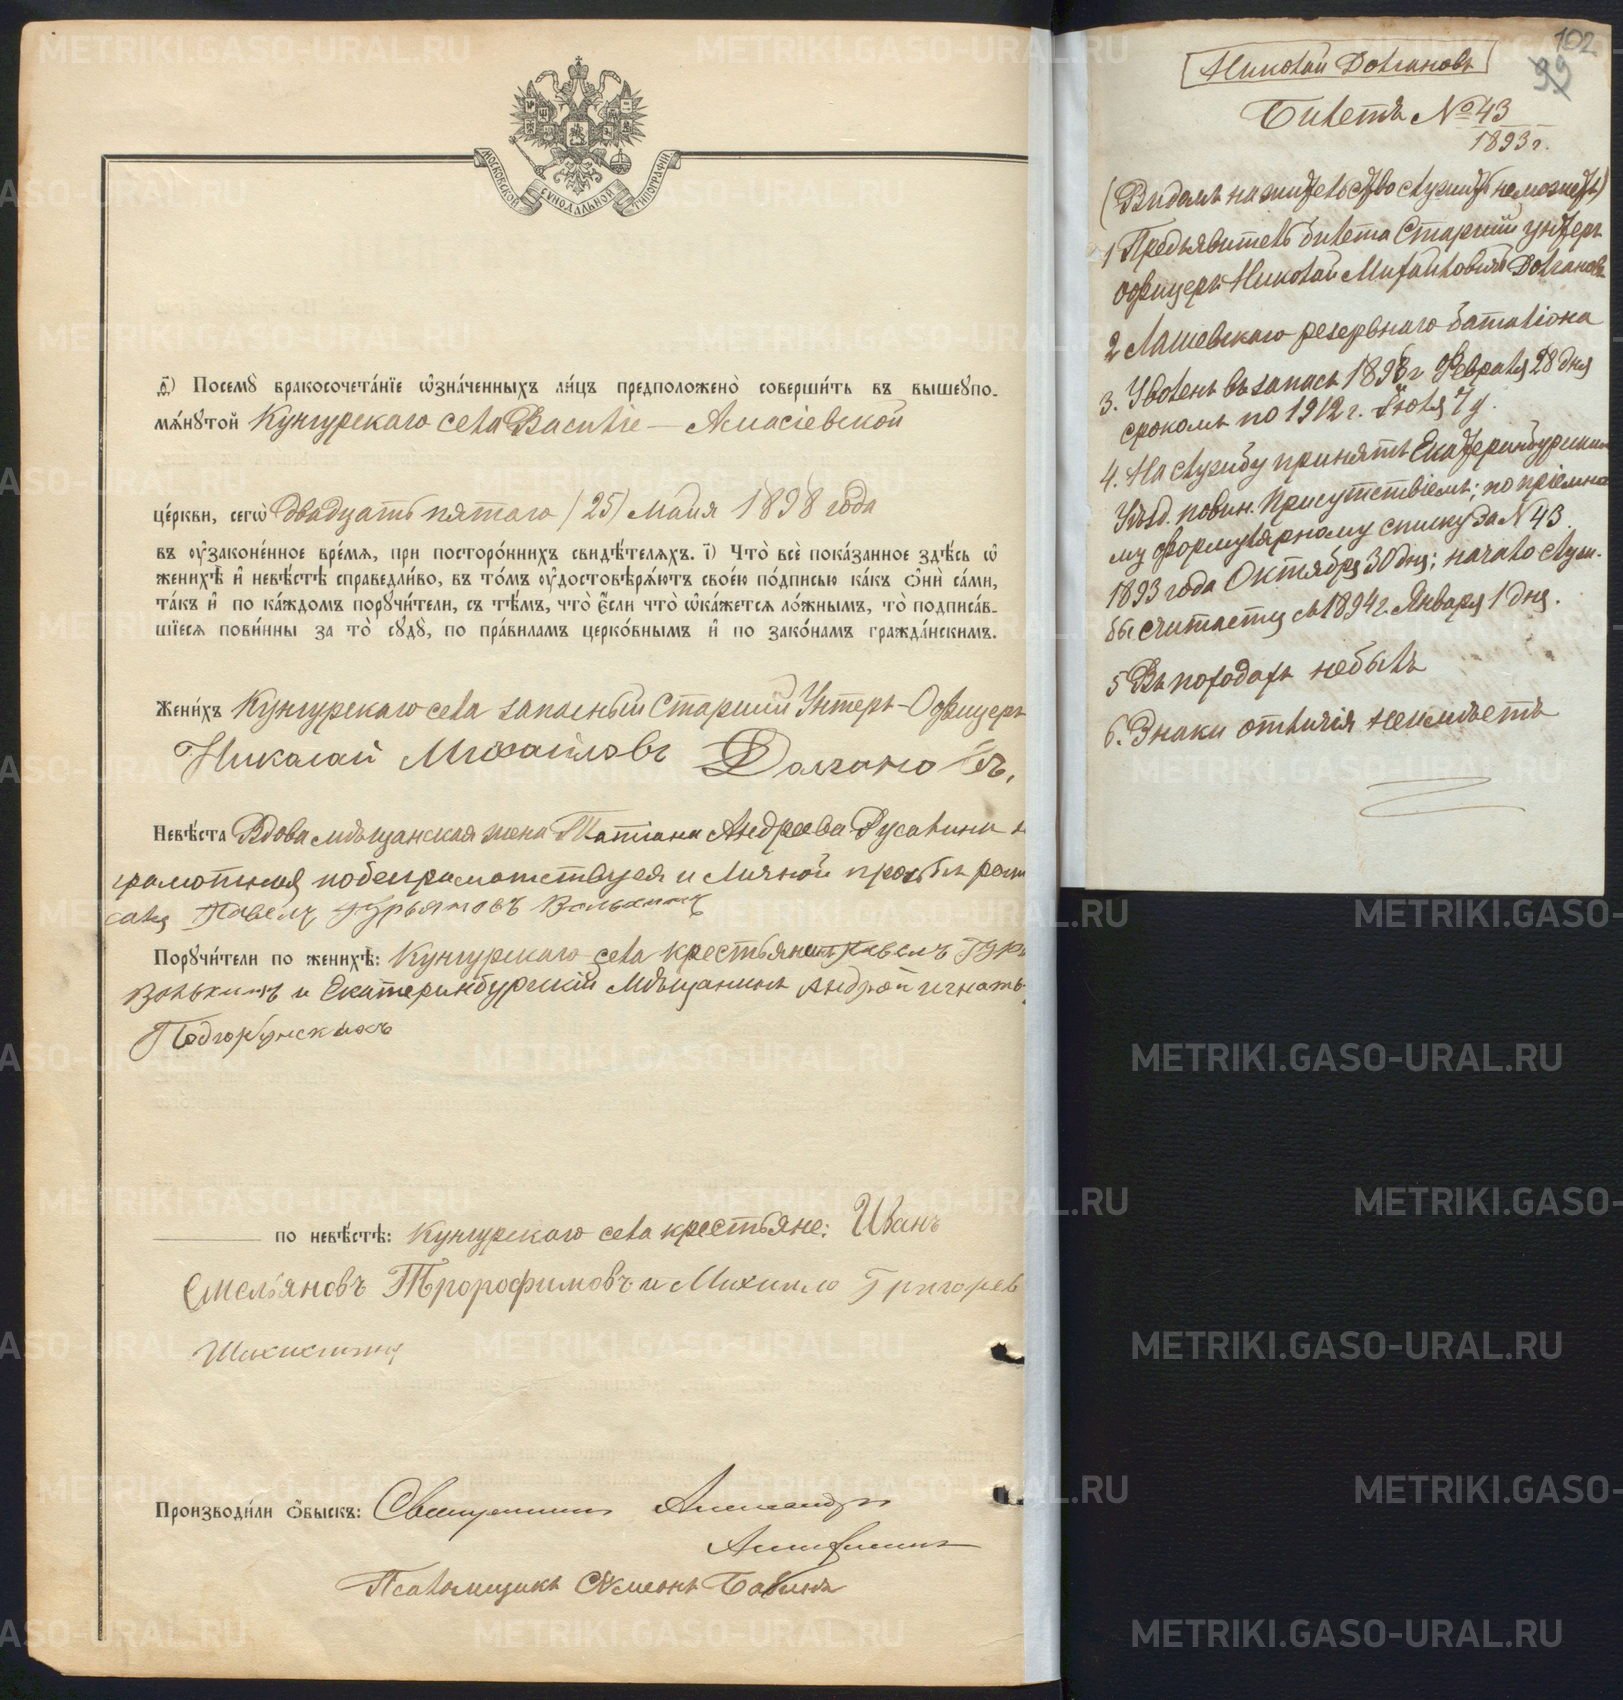 МОСКОВСКОЙ СѴНОДАЛЬНОЙ ТИПОГРАФІИ
ѳ҃) Посемꙋ̀ бракосочета́нїе ѡ҆зна́ченныхъ ли́цъ предположено̀ соверши́ть въ вышеꙋпо-
мѧ́нꙋтой Кунгурскаго села Василіе-Амасіевской
це́ркви, сегѡ̀ двадцать пятаго (25) Маія 1898 года
въ ᲂу҆законе́нное вре́мѧ, при посторо́ннихъ свидѣ́телѧхъ. і҃) Что̀ всѐ пока́занное здѣ́сь ѡ҆
женихѣ̀ и҆ невѣ́стѣ справедли́во, въ то́мъ ᲂу҆достовѣрѧ́ютъ свое́ю по́дписью ка́къ ѻ҆нѝ са́ми,
та́къ и҆ по ка́ждомъ порꙋчи́тели, съ тѣ́мъ, что̀ є҆́сли что̀ ѡ҆ка́жетсѧ ло́жнымъ, то̀ подписа́в-
шїесѧ пови́нны за то̀ сꙋдꙋ̀, по пра́виламъ церко́внымъ и҆ по зако́намъ гражда́нскимъ.
Жени́хъ Кунгурскаго села запасный Старшій Унтеръ-Офицеръ
Николай Михайловъ Долгановъ.
Невѣ́ста Вдова мѣщанская жена Татіана Андреева Русакина
грамотная по безграмотству ея и личной просьбѣ
Павелъ Гурьяновъ Вольхинъ
Порꙋчи́тели по женихѣ̀: Кунгурскаго села крестьянинъ Павелъ
Вольхинъ и Екатеринбургскій Мѣщанинъ Андрей Игнать
Подгорбунскихъ
по невѣ́стѣ: Кунгурскаго села крестьяне: Иванъ
Емельяновъ Тророфимовъ и Михаило Григорев
Производи́ли ѻ҆́быскъ: Священникъ Александръ
Псаломщикъ Сѵмеонъ Бабинъ
102
99
Николай Долгановъ
Билетъ № 43
1893 г.
(Видомъ на жительство служить не можетъ)
1 Предъявитель билета Старшій унтеръ
офицеръ Николай Михайловичъ Долгановъ
2 Лаишевскаго резервнаго баталіона
3. Уволенъ въ запасъ 1898 г. Февраля 28 дня
срокомъ по 1912 г. Іюля 7 д.
4. На службу принятъ Екатеринбургскимъ
Уѣзд. повин. Присутствіемъ; по пріемно
му формулярному списку за № 43
1893 года Октября 30 дня; начало служ-
бы считается съ 1894 г. Января 1 дня.
5 Въ походахъ не былъ
6. Знаки отличія не имѣетъ
METRIKI.GASO-URAL.RU